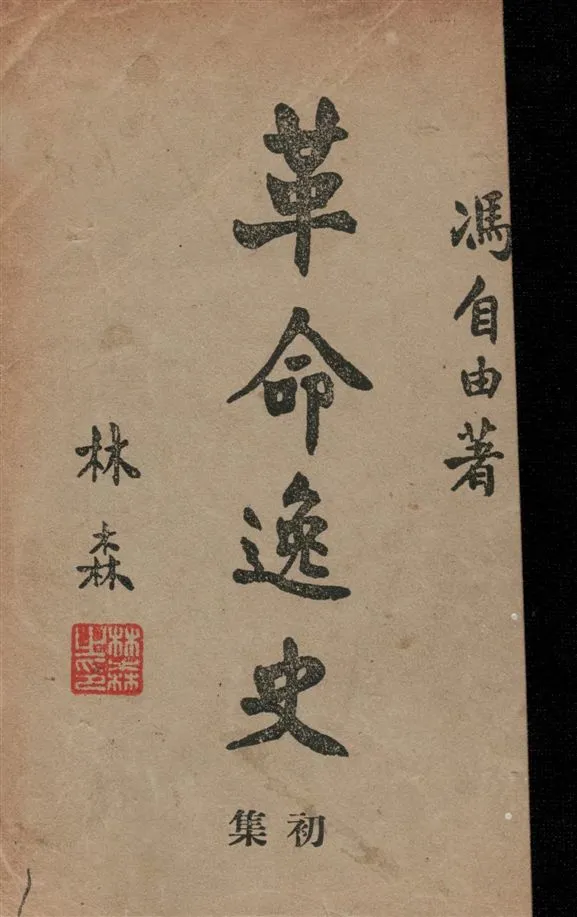 馮自由著
革命逸史
初集
林森
林森之印